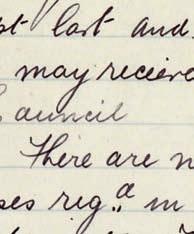 pt last and
may recieve
Council
There are n
ses reg.d in